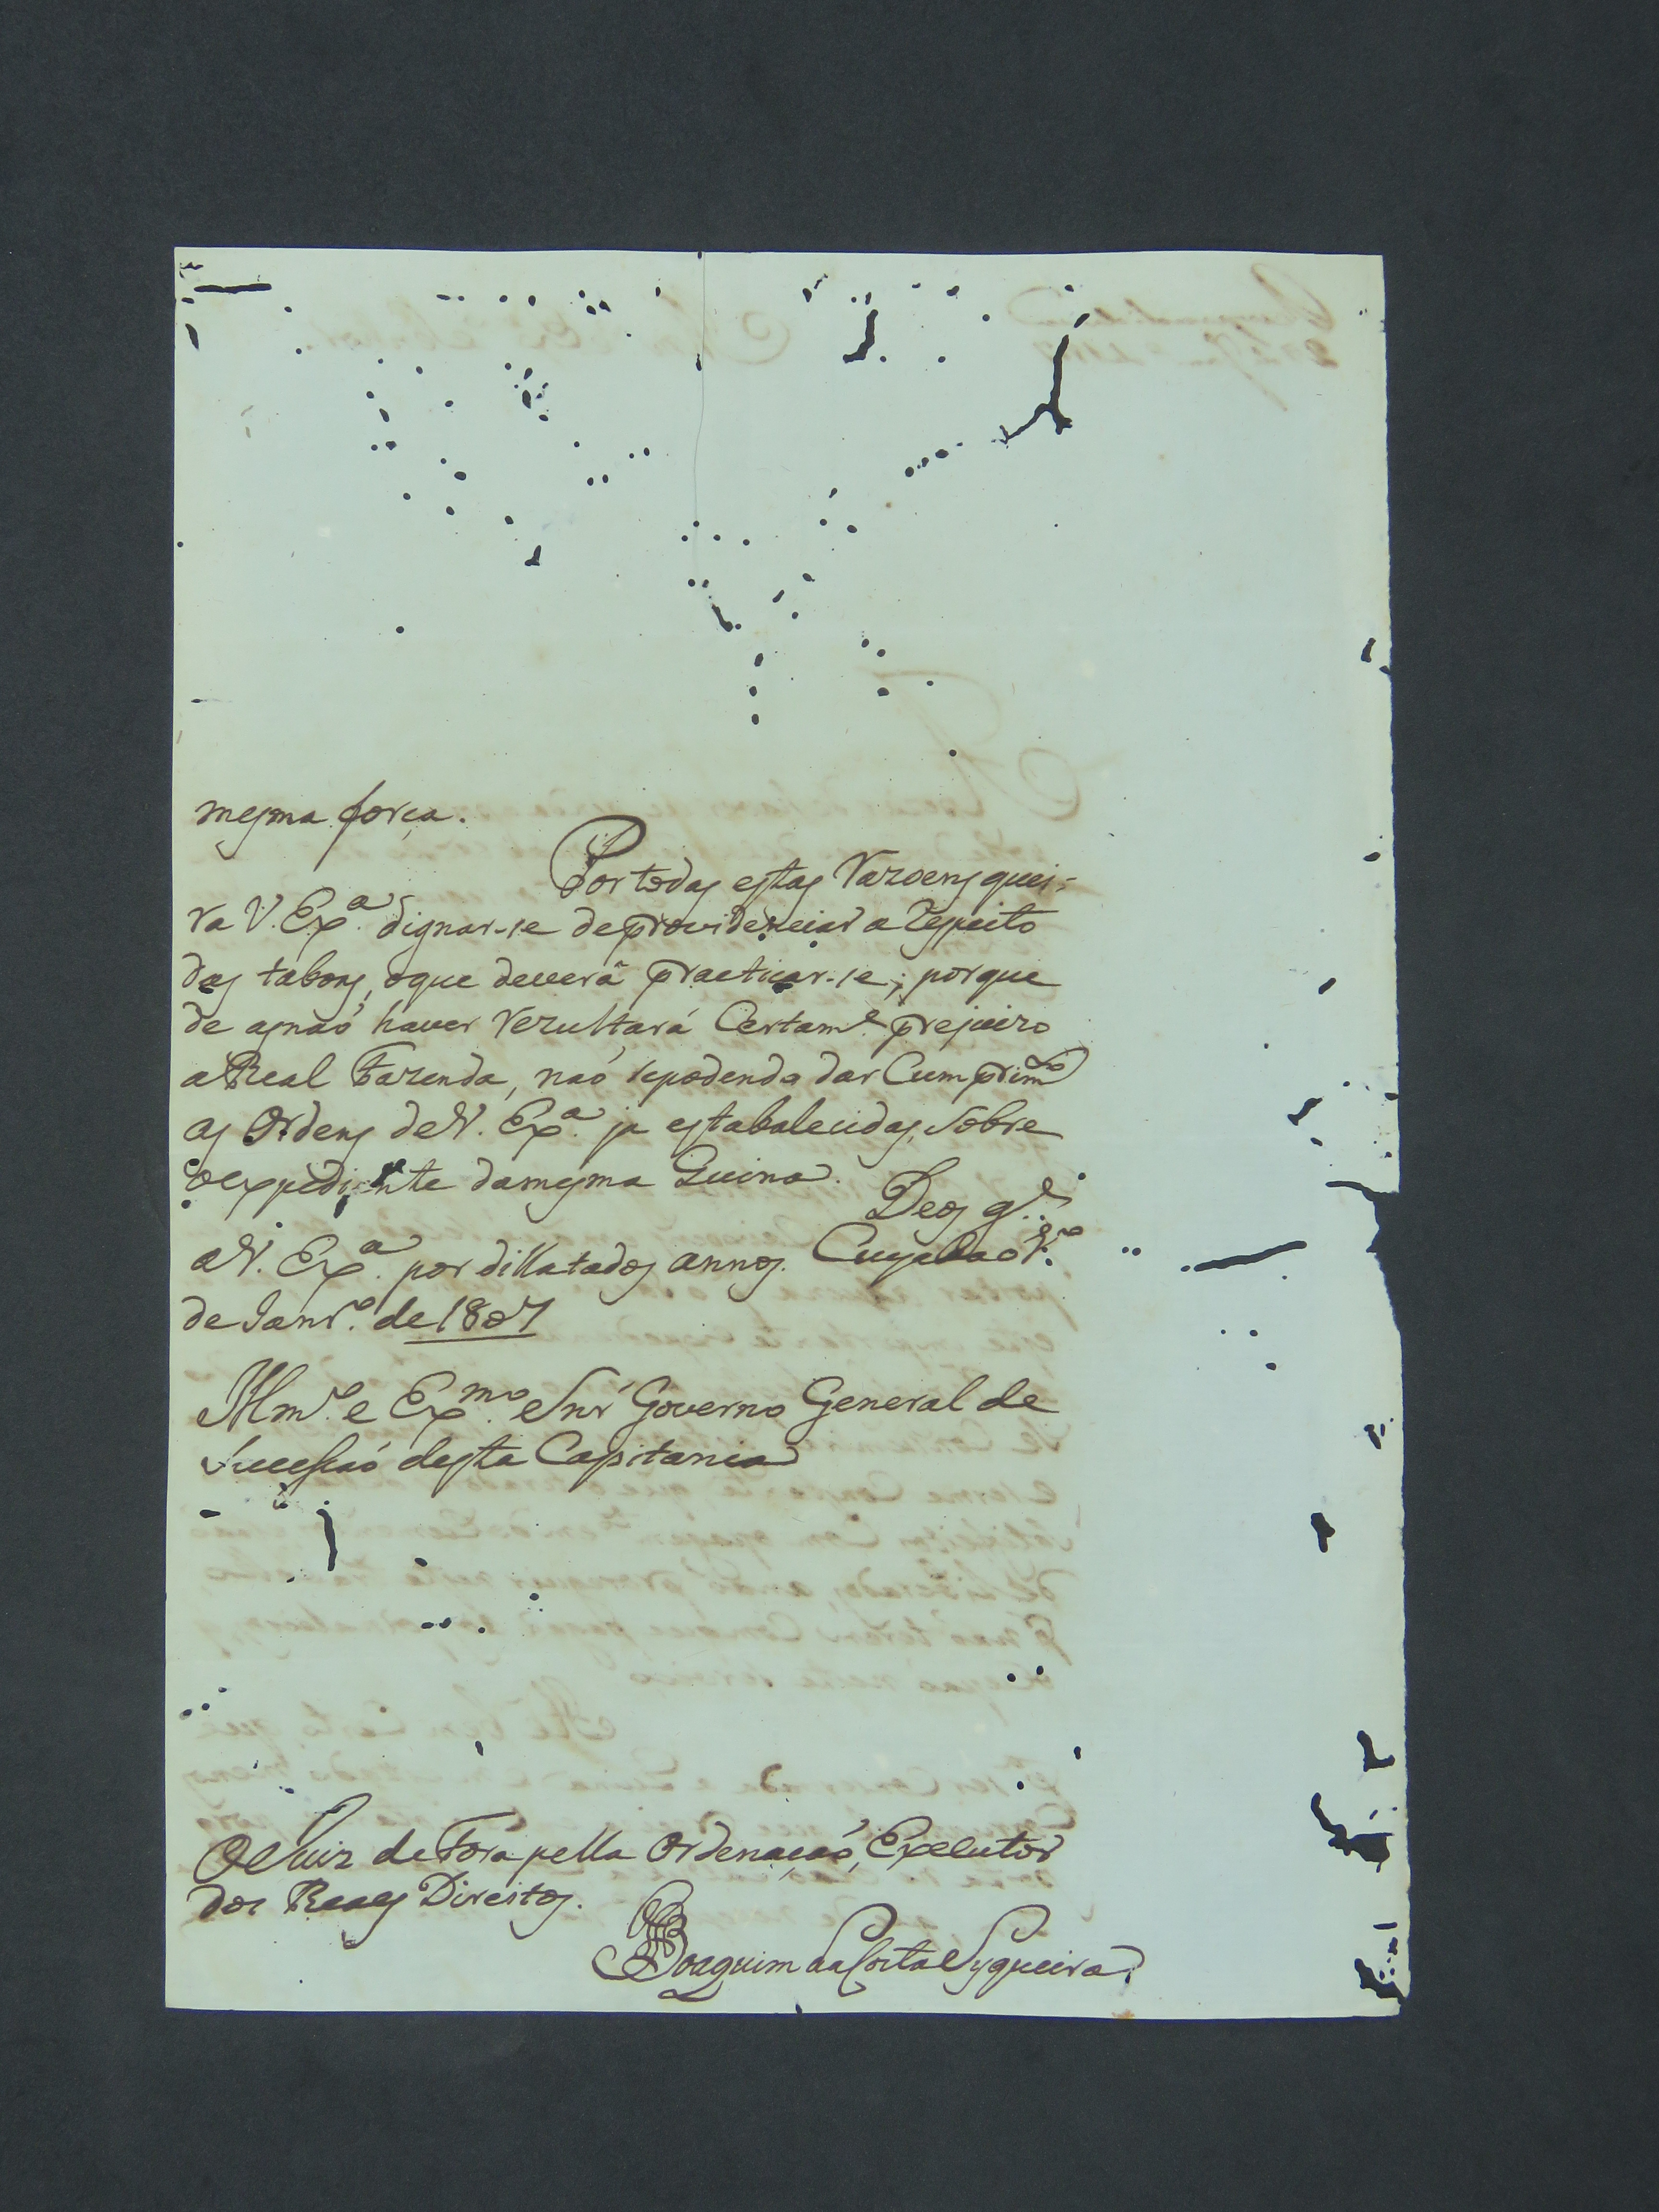 mesma força.
Por todas estas razoens quei-
ra V. Exª. dignar-se de providenciar a respeito
das taboas, o que deverá practicar-se; porque
de as naó haver rezultará Certamᵉ. prejuizo
a Real Fazenda, naó se podendo dar Cumprimᵗᵒ
as Ordens de V. Exª. ja estabalecidas, sobre
o expediente da mesma Quina.
Deos gᵉ.
a V. Exª. por dillatados annos. Cuyaba o 1º.
de Janrº. de 1807
Illmº. e Exmº. Snr Governo General de
Sucessaó desta Capitania
O Juiz de Fora pella Ordenaçaó, Executor
dos Reaes Direitos.
Joaquim da Costa Syqueira